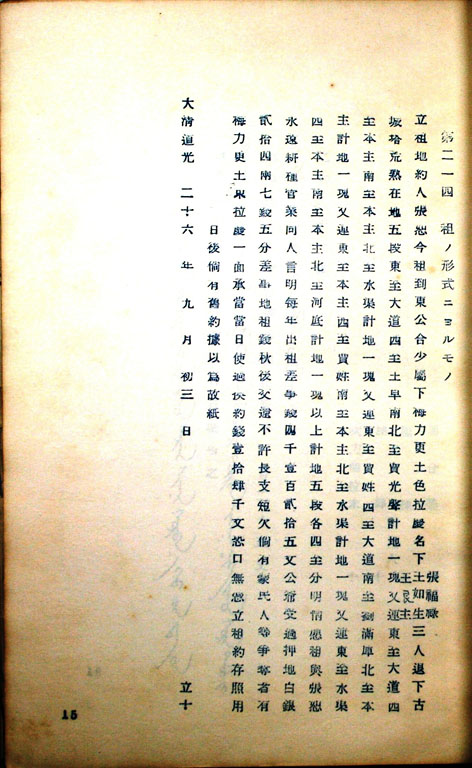 第二一四 租ノ形式ニヨルモノ
張福祿
王良主
立租地約人張恕今租到東公合少屬下梅力更土色拉慶名下土如生三人退下古
城塔荒熟在地五段東至大道四至土阜南北至賣光聲計地一塊又連東至大道四
至本主南至本主北至水渠計地一塊又連東至賈姓四至大道南至劉滿庫北至本
主計地一塊又連東至本主西至賈姓南至本主北至水渠計地一塊又連東至水渠
四至本主南至本主北至河底計地一塊以上計地五段各四至分明情愿租與張恕
永遠耕種官業同人言明每年出租差爭錢四千壹百貳拾五文公爺受過押地白銀
貳拾四兩七錢五分差事地租錢秋後交還不許長支短欠倘有蒙民人等爭奪者有
梅力更土色拉慶一面承當當日使過佽約錢壹拾肆千文恐口無憑立租約存照用
日後倘有舊約據以為故紙
大清道光 二十六 年 九 月 初三 日 立十
15